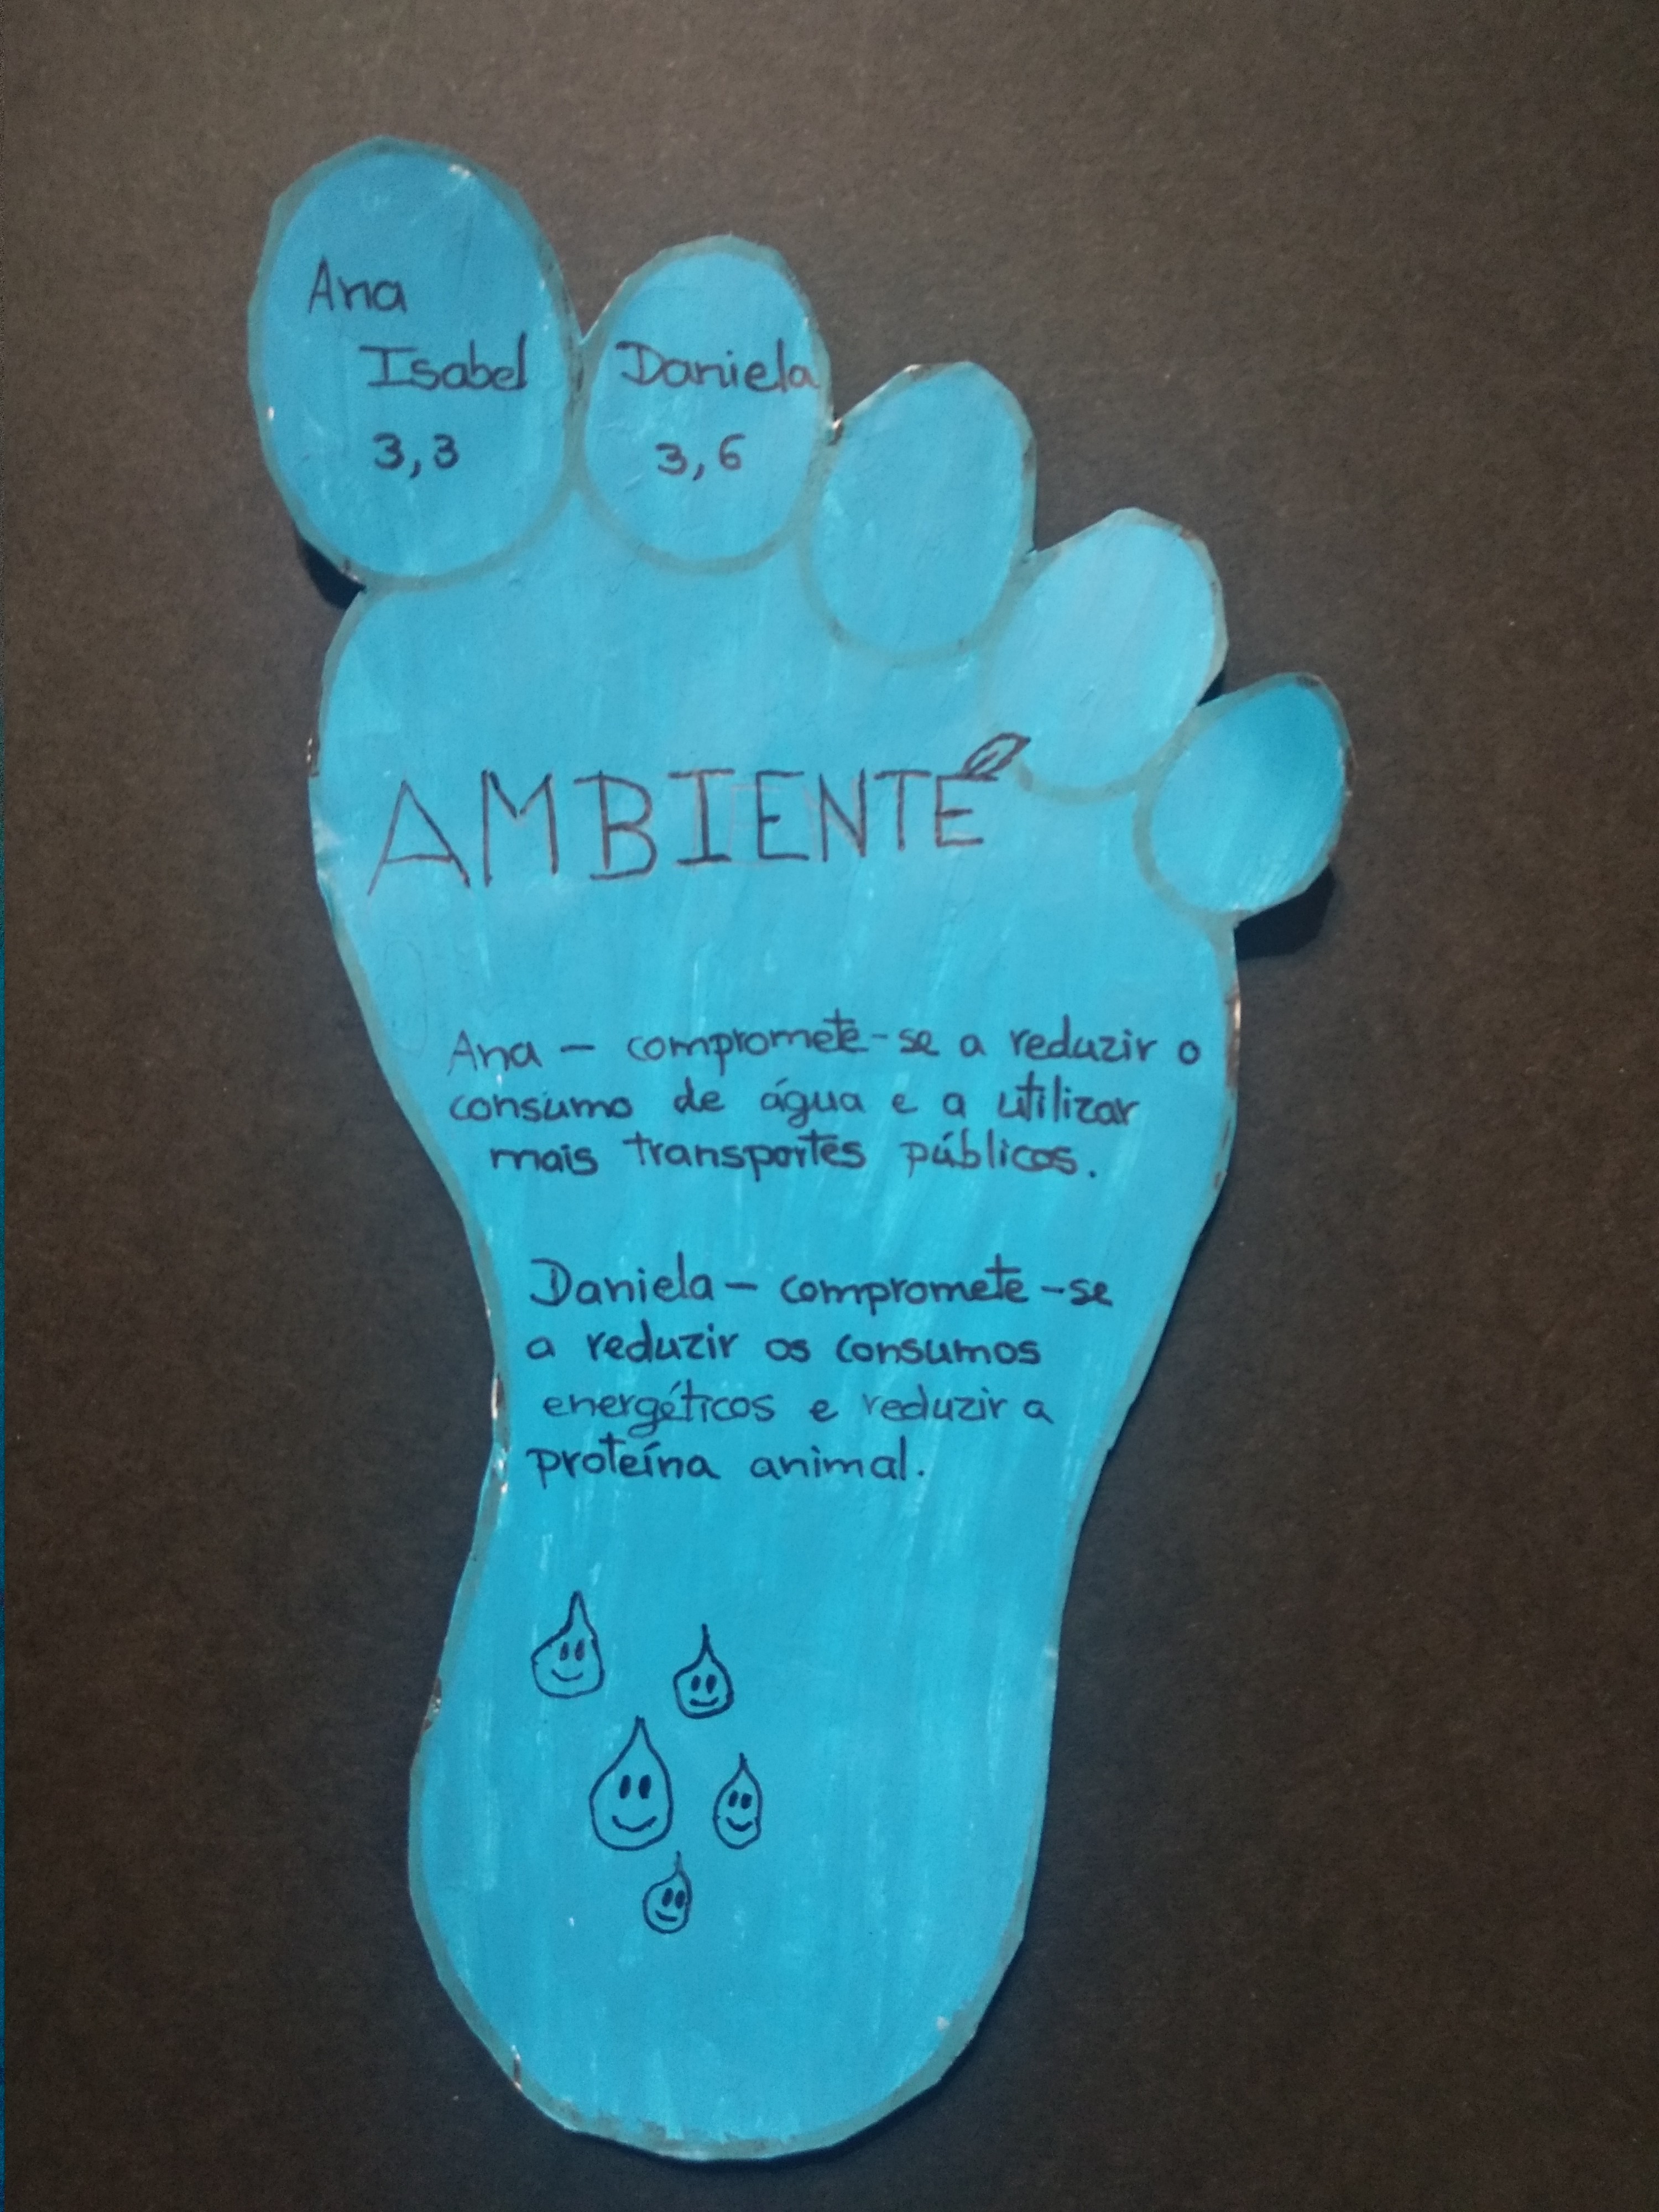 Ana
Isabel
3,3
Daniela
3,6
AMBIENTE
Ana - compromete-se a reduzir o
consumo de água e a utilizar
mais transportes públicos.
Daniela - compromete-se
a reduzir os consumos
energéticos e reduzir a
proteína animal.